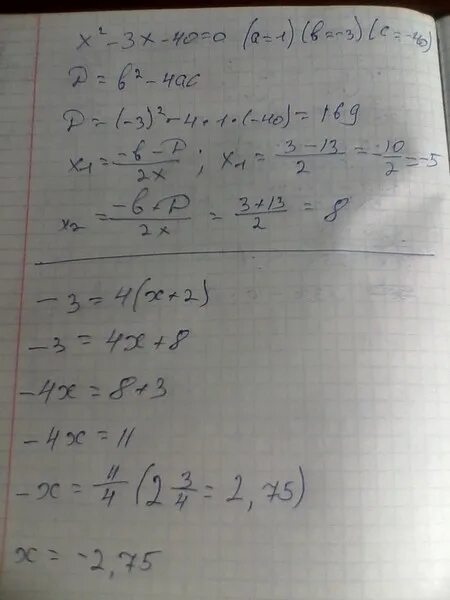 x² - 3x - 40 = 0 (a = 1) (в = -3) (c = -40)
D = в² - 4ac
D = (-3)² - 4 · 1 · (-40) = 169
x₁ = (-в - D)/2x ; x₁ = (3 - 13)/2 = -10/2 = -5
x₂ = (-в + D)/2x = (3 + 13)/2 = 8
-3 = 4(x + 2)
-3 = 4x + 8
-4x = 8 + 3
-4x = 11
-x = 11/4 (2 3/4 = 2,75)
x = -2,75